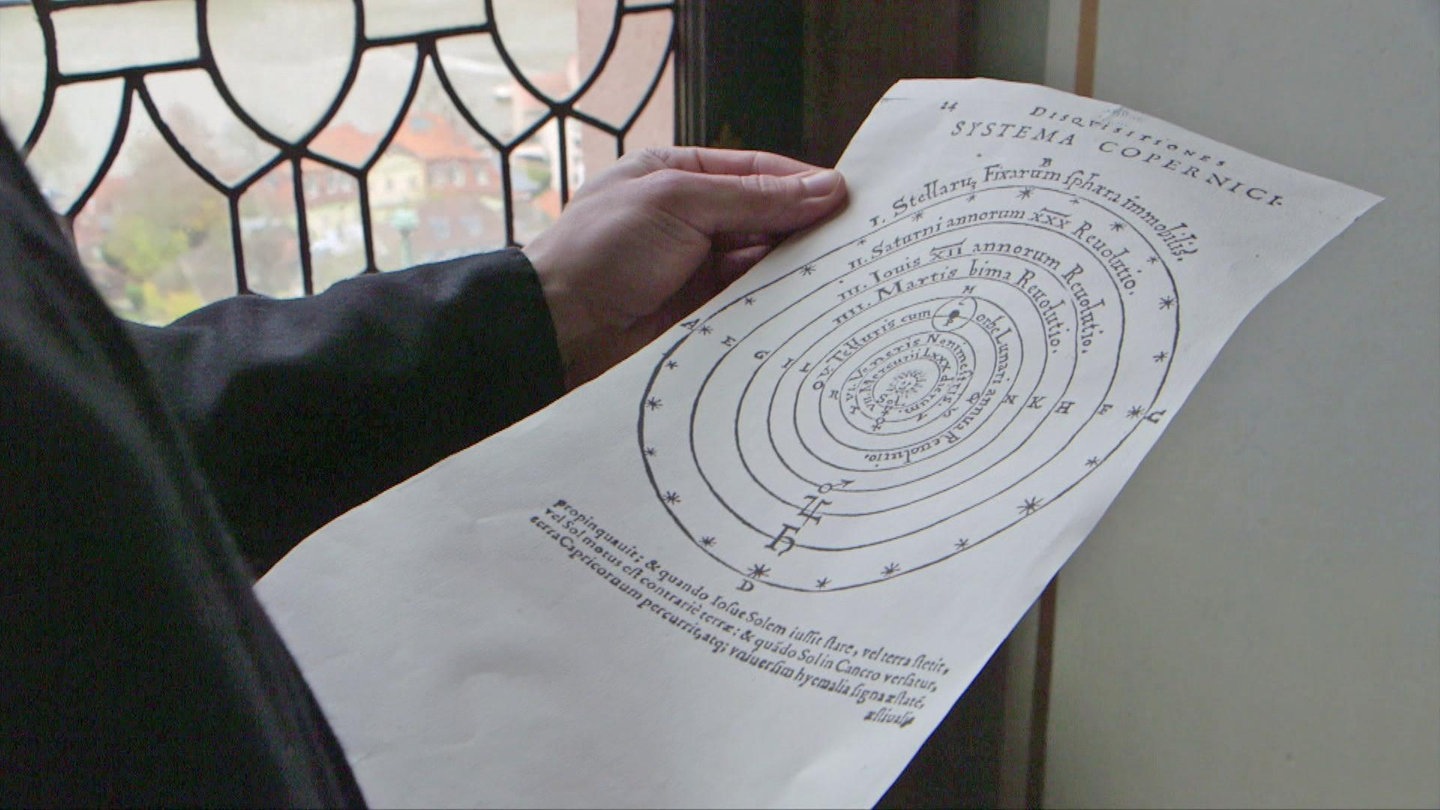 24
DISQVISITIONES
SYSTEMA COPERNICI.
B
I. Stellarū Fixarum sphæra immobilis.
II. Saturni annorum XXX Reuolutio.
III. Iouis XII annorum Reuolutio.
IIII. Martis bima Reuolutio.
M
V. Telluris cum orbe Lunari annua Reuolutio.
VI. Veneris Nonimestris.
VII. Mercurii LXXX dierum.
Sol
A E G I L
N K H
♂
♃
♄
D
propinquauit; & quando Iosue Solem iussit stare, vel terra stetit,
vel Sol motus est contrariè terræ: & quādo Sol in Cancro versatur,
terra Capricornum percurrit, atq; vniuersim hyemalia signa æstatē,